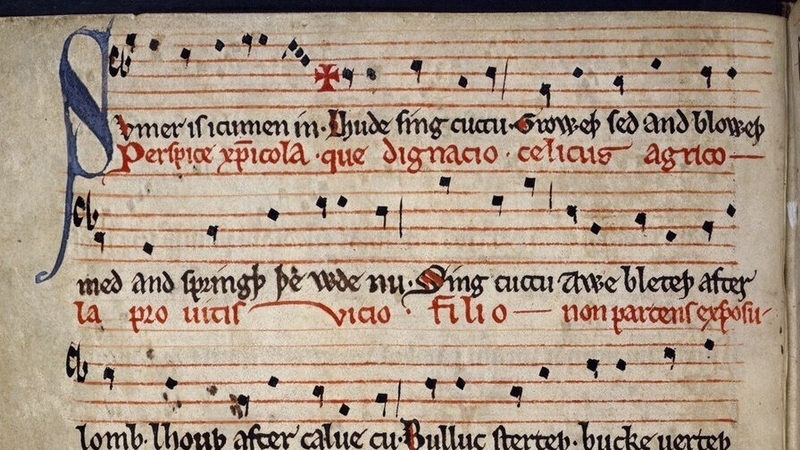 Svmer is icumen in. Lhude sing cuccu. Groweþ sed and bloweþ
Perspice xp̄icola. que dignacio. celicus agrico
med and springþ þe wde nu. Sing cuccu Awe bleteþ after
la pro uitis vicio. filio non parcens exposu-
lomb. lhouþ after calue cu. Bulluc sterteþ. bucke uerteþ